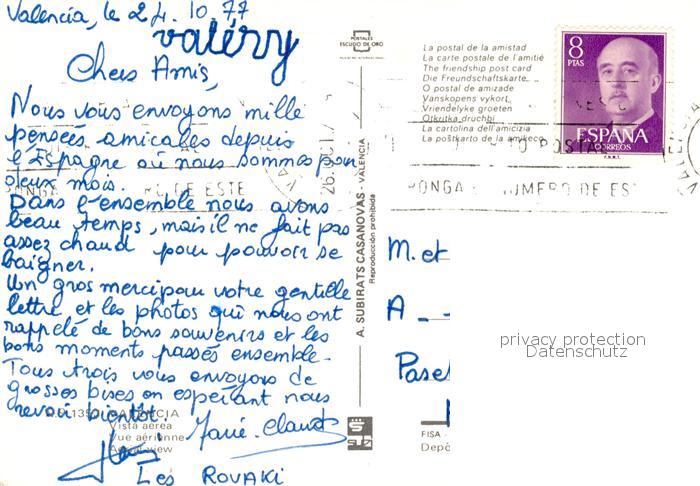 Valencia, le 24.10.77
valéry
Chers Amis,
Nous vous envoyons mille
pensées amicales depuis
l'Espagne où nous sommes pour
deux mois.
Dans l'ensemble nous avons
beau temps, mais il ne fait pas
assez chaud pour pouvoir se
baigner.
Un gros merci pour votre gentille
lettre et les photos qui nous ont
rappelé de bons souvenirs et les
bons moments passés ensemble.
Tous trois vous envoyons de
grosses bises en espérant nous
revoir bientôt.
Marie-Claude
Les ROVAKI
VALENCIA
Vista aérea
Vue aérienne
Aerial view
POSTALES
ESCUDO DE ORO
A. SUBIRATS CASANOVAS - VALENCIA
Reproducción prohibida
La postal de la amistad
La carte postale de l'amitié
The friendship post card
Die Freundschaftskarte
O postal de amizade
Vanskopens vykort
Vriendelyke groeten
Otkritka druchbi
La cartolina dell'amicizia
La poŝtkarto de la amikeco
8
PTAS
ESPAÑA
CORREOS
F.N.M.T.
PONGA NUMERO DE ES
M. et
A
privacy protection
Datenschutz
FISA -
Depó